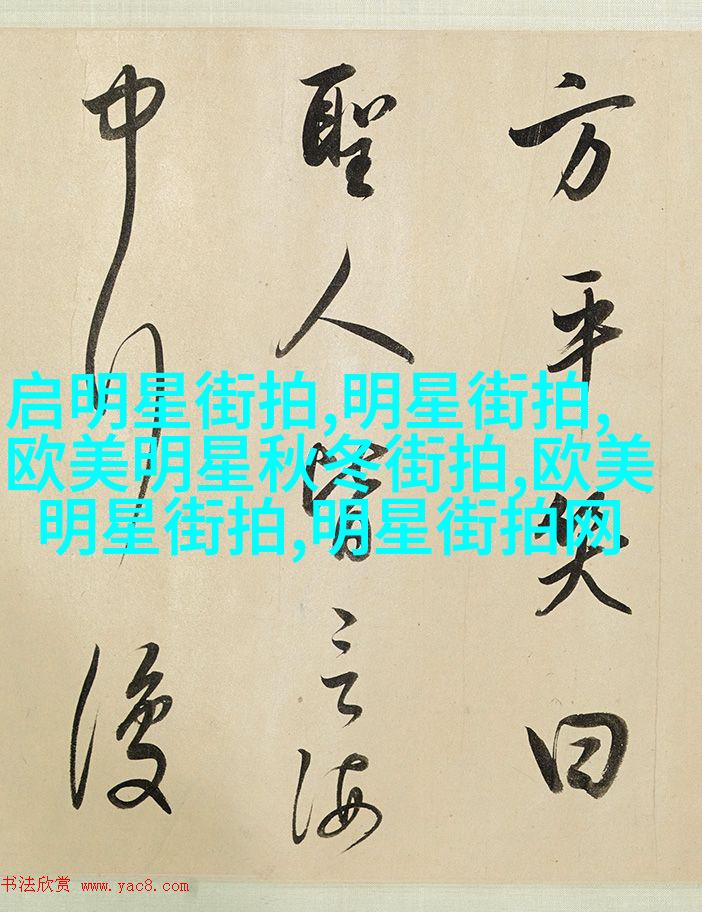 方平笑曰
聖人皆言海
中行復
启明星街拍,明星街拍,
欧美明星秋冬街拍,欧美
明星街拍,明星街拍网
书法欣赏 www.yac8.com